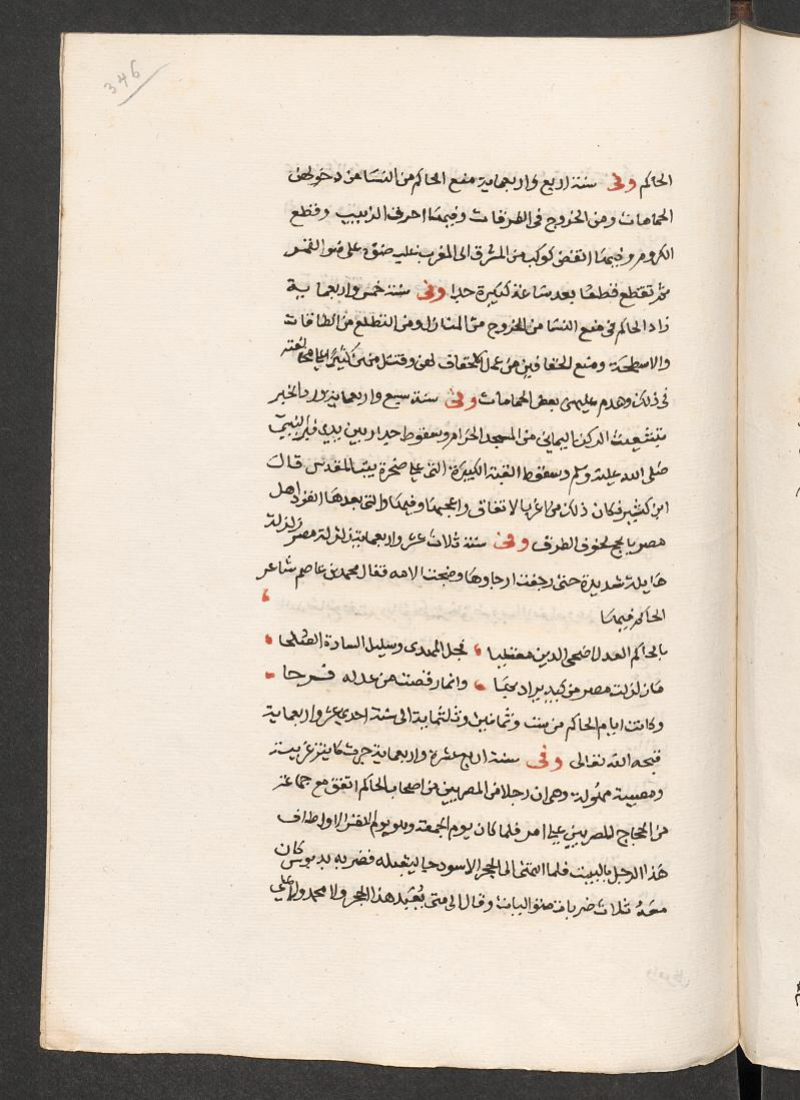 346
الحاكم وفى سنة اربع واربعماية منع الحاكم من النسا من دخولهن
الحمامات ومن الخروج فى الطرقات وفيها احرق الزبيب وقطع
الكروم وفيها انقض كوكب من المشرق الى المغرب غلب ضوه على ضو القمر
ثم تقطع قطعا بعد ساعة كبيرة جدا وفى سنة خمس واربعماية
زاد الحاكم فى منع النسا من الخروج من المنازل ومن التطلع من الطاقات
والاسطحة ومنع الخفافين من عمل الخفاف لهن وقتل منهن كثيرا على مخالفته
فى ذلك وهدم عليهن بعض الحمامات وفى سنة سبع واربعماية ورد الخبر
بتشعيث الركن اليمانى من المسجد الحرام وبسقوط جدار بين يدى قبر النبى
صلى الله عليه وسلم وسقوط القبة الكبيرة التى على صخرة بيت المقدس قال
ابن كثير فكان ذلك من اغرب الاتفاق واعجبها وفيها والتى بعدها انفرد اهل
مصر بالحج لخوف الطرق وفى سنة ثلاث عشر واربعماية زلزلة مصر زلزلة
هايلة شديدة حتى رجفت ارجاوها وضجت الامه فقال محمد بن عاصم شاعر
الحاكم فيها
بالحاكم العدل اضحى الدين معتليا نجل الهدى وسليل السادة الصلحا
ما زلزلت مصر من كيد يراد بها وانما رقصت من عدله فرحا
وكانت ايام الحاكم من ست وثمانين وثلثماية الى سنة احدى عشر واربعماية
قبحه الله تعالى وفى سنة اربع عشرة واربعماية جرت كاينة غريبة
ومصيبة مهولة وهى ان رجلا من المصريين من اصحاب الحاكم اتفق مع جماعة
من الحجاج المصريين على امر فلما كان يوم الجمعة وهو يوم النفر الاول طاف
هذا الرجل بالبيت فلما انتهى الى الحجر الاسود جا ليقبله فضربه بدبوس كان
معه ثلاث ضربات متواليات وقال الى متى يُعْبَد هذا الحجر ولا محمد ولا على